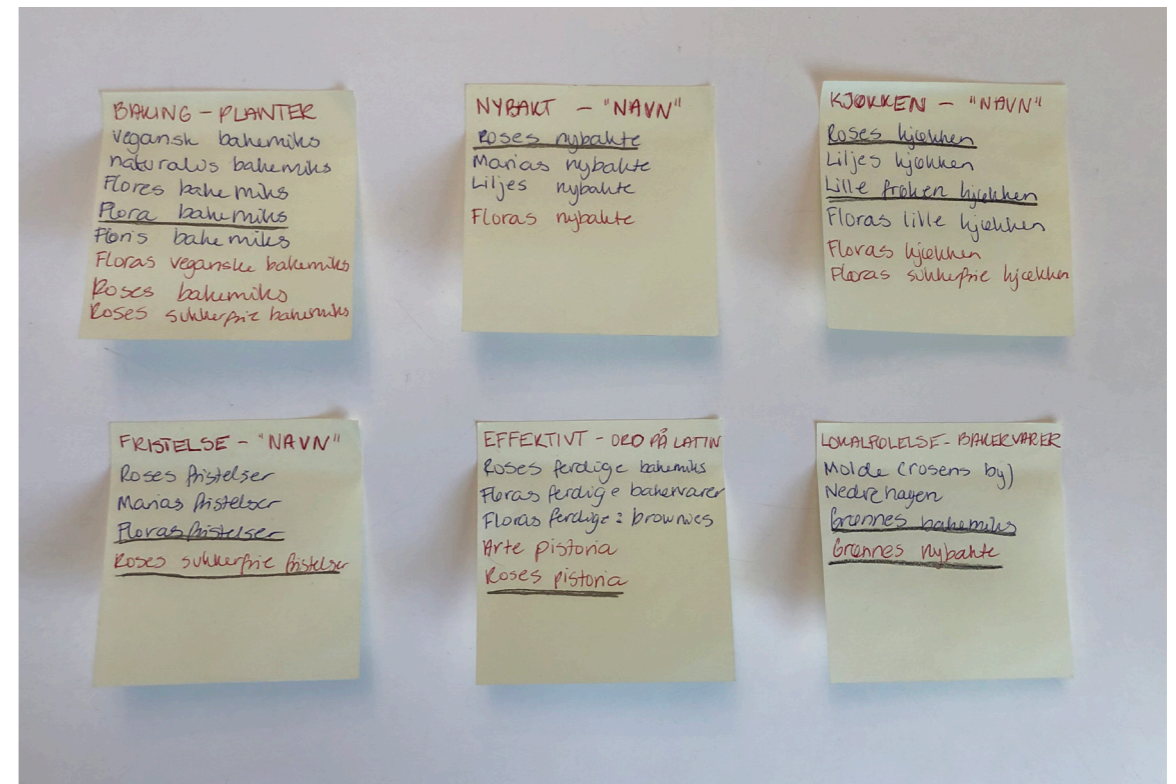 BAKING - PLANTER
Vegansk bakemiks
naturalis bakemiks
Flores bakemiks
Flora bakemiks
Floris bakemiks
Floras veganske bakemiks
Roses bakemiks
Roses sukkerfrie bakemiks
NYBAKT - "NAVN"
Roses nybakte
Marias nybakte
Liljes nybakte
Floras nybakte
KJØKKEN - "NAVN"
Roses kjøkken
Liljes kjøkken
Lille frøken kjøkken
Floras lille kjøkken
Floras kjøkken
Floras sukkerfrie kjøkken
FRISTELSE - "NAVN"
Roses fristelser
Marias fristelser
Floras fristelser
Roses sukkerfrie fristelser
EFFEKTIVT - ORD PÅ LATIN
Roses ferdige bakemiks
Floras ferdige bakervarer
Floras ferdige: brownies
Arte pistoria
Roses pistoria
LOKALFØLELSE - BAKERVARER
Molde (rosens by)
Nedre hagen
Grønnes bakemiks
Grønnes nybakte